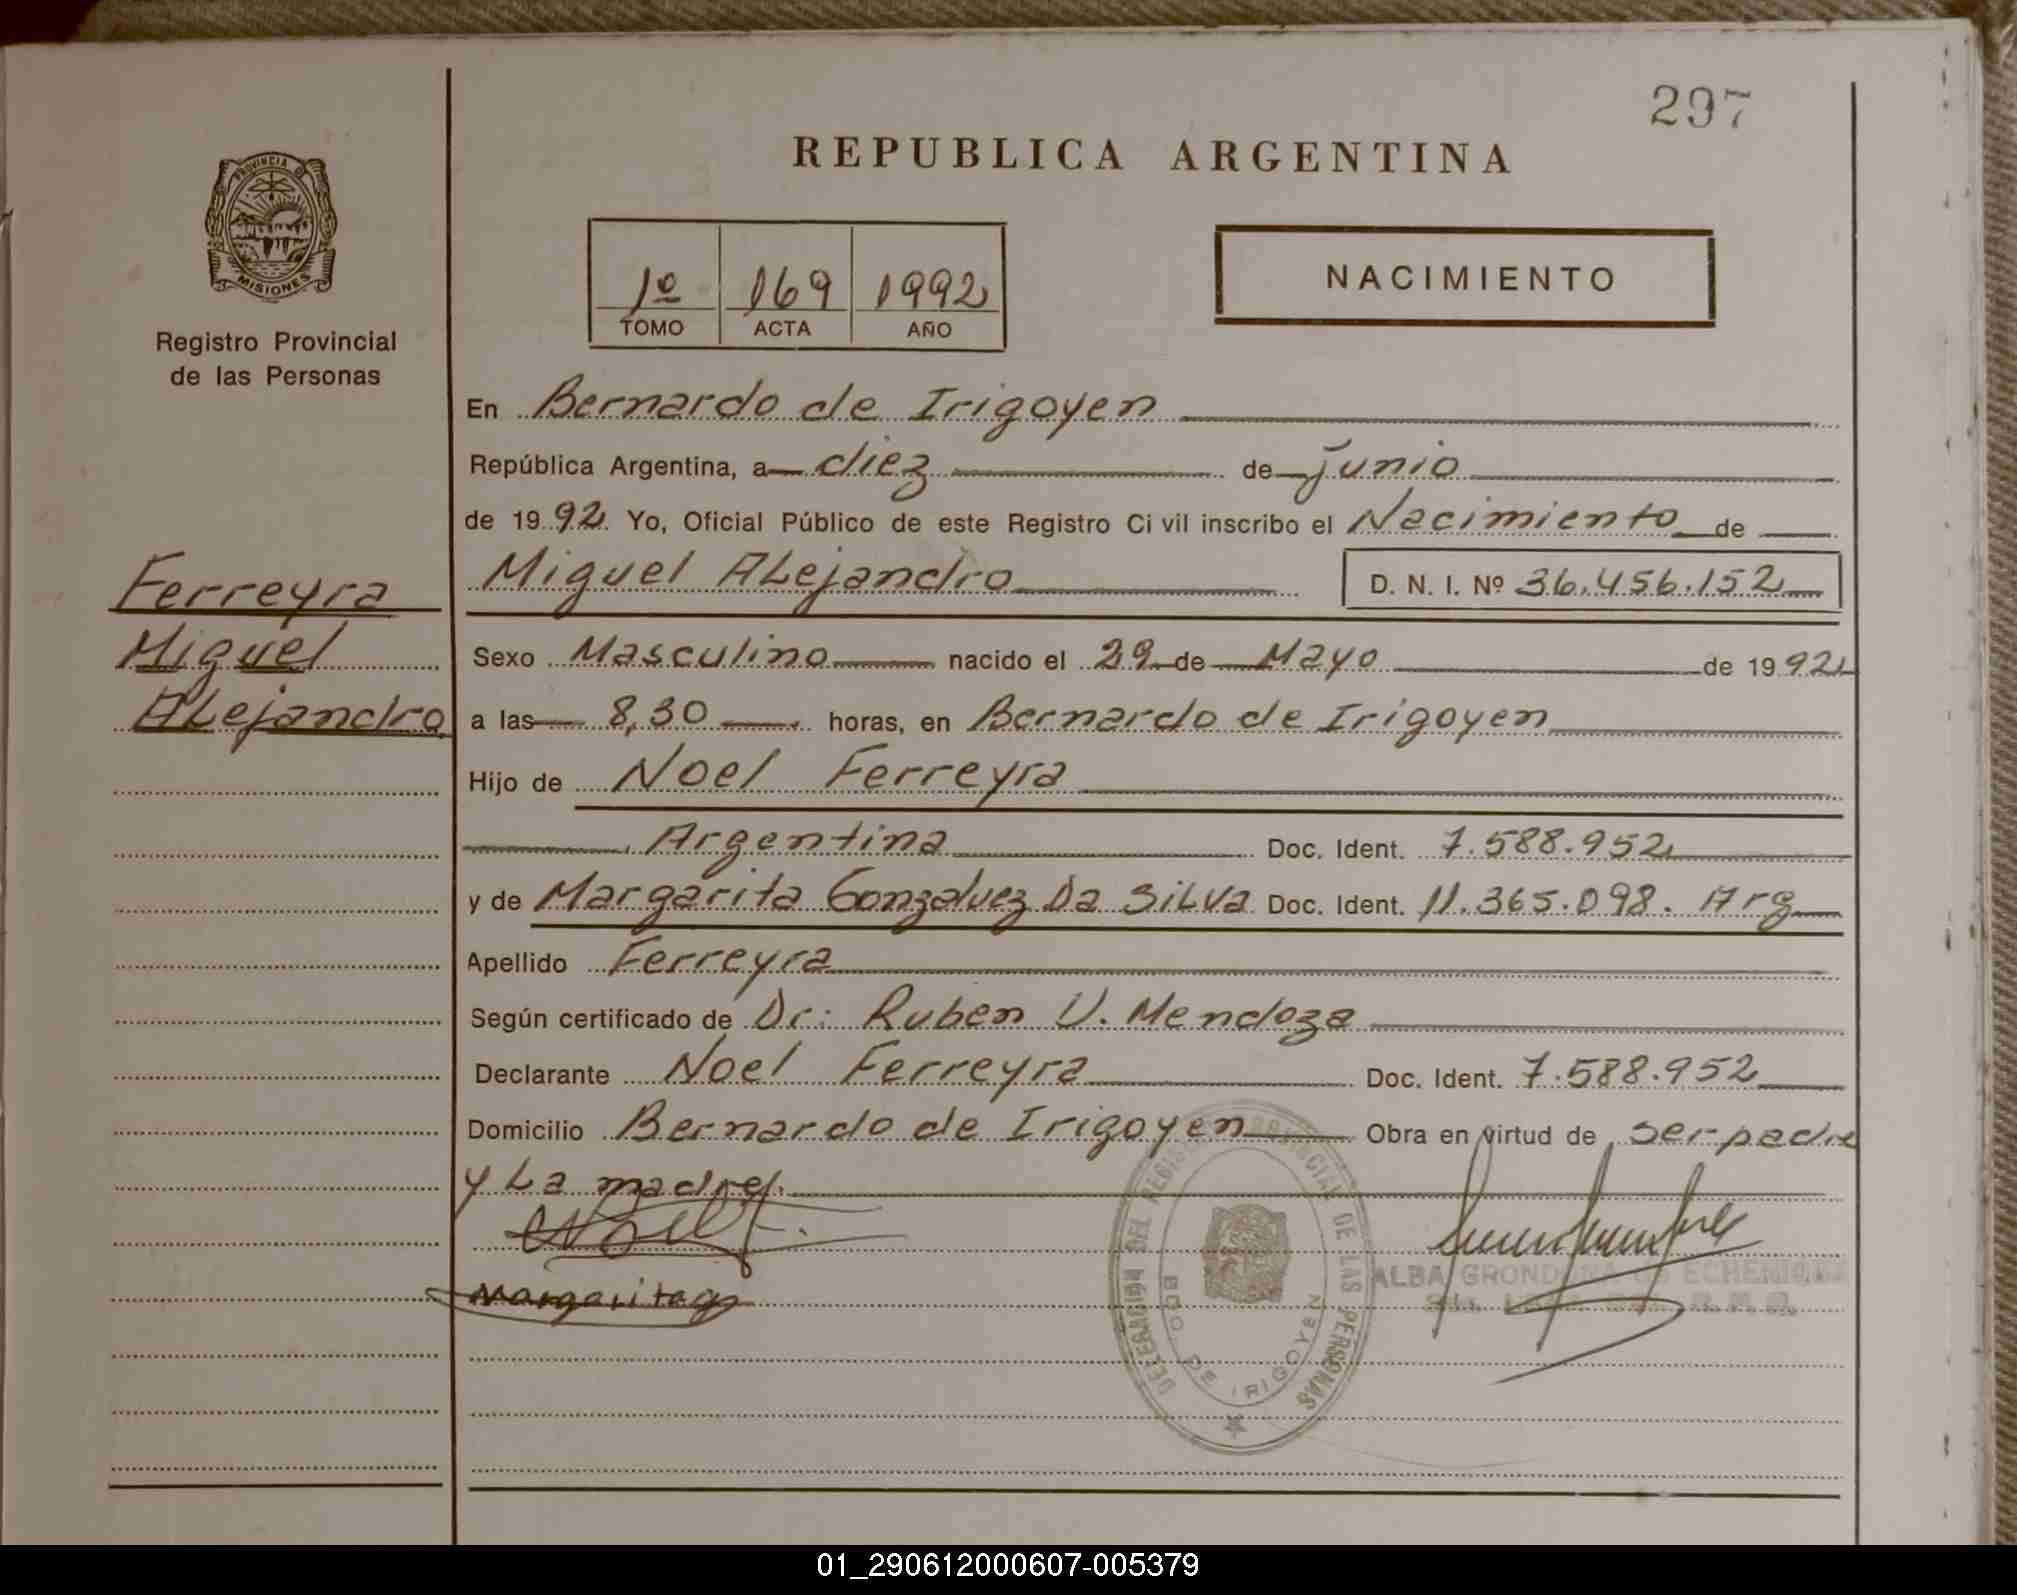 297
REPUBLICA ARGENTINA
PROVINCIA DE
MISIONES
Registro Provincial
de las Personas
1º 169 1992
TOMO ACTA AÑO
NACIMIENTO
Ferreyra
Miguel
ALejandro
En Bernardo de Irigoyen
República Argentina, a diez de junio
de 1992 Yo, Oficial Público de este Registro Ci vil inscribo el Nacimiento de
Miguel ALejandro D. N. I. Nº 36.456.152
Sexo Masculino nacido el 29 de Mayo de 1992
a las 8,30 horas, en Bernardo de Irigoyen
Hijo de Noel Ferreyra
Argentina Doc. Ident. 7.588.952
y de Margarita Gonzalvez Da SiLva Doc. Ident. 11.365.098. Arg
Apellido Ferreyra
Según certificado de Dr: Ruben V. Mendoza
Declarante Noel Ferreyra Doc. Ident. 7.588.952
Domicilio Bernardo de Irigoyen Obra en virtud de ser padre
y La madre.
Noel F.
Margarita g
DEL REGISTRO PROVINCIAL DE LAS PERSONAS
BDO. DE IRIGOYEN
ALBA GRONDONA de ECHENIQUE
01_290612000607-005379